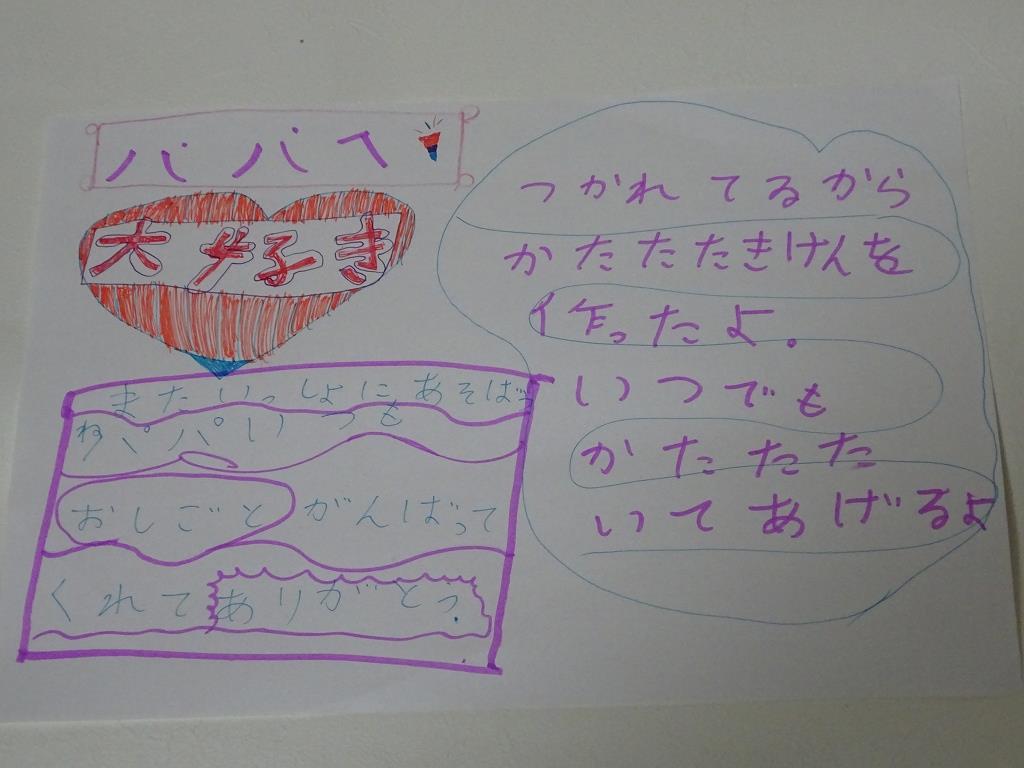 パパへ
大好き
またいっしょにあそばう
ねパパいつも
おしごとがんばって
くれてありがとう
つかれてるから
かたたたきけんを
作ったよ。
いつでも
かたたた
いてあげるよ